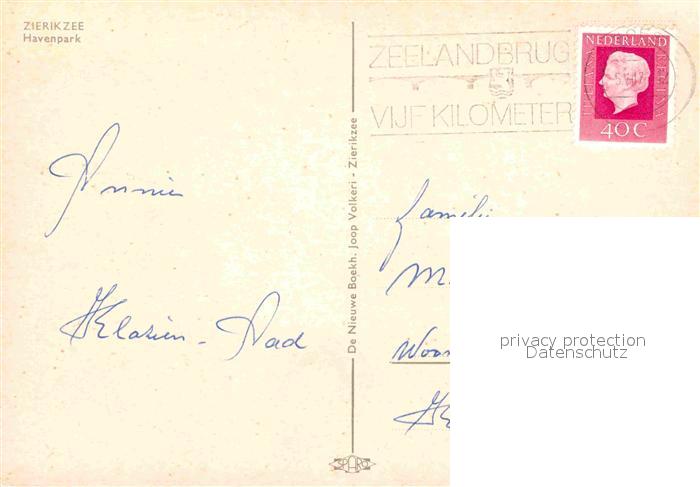 ZIERIKZEE
Havenpark
ZEELANDBRUG
VIJF KILOMETER
NEDERLAND
JULIANA REGINA
40 C
De Nieuwe Boekh. Joop Volkeri - Zierikzee
Annie
Klasien - Aad
familie
M
Woon
privacy protection
Datenschutz
SPARO